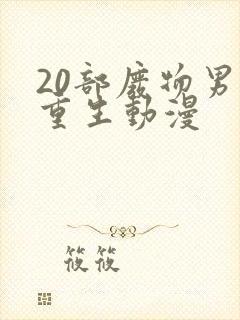 20部廢物男
重生動漫
筱筱